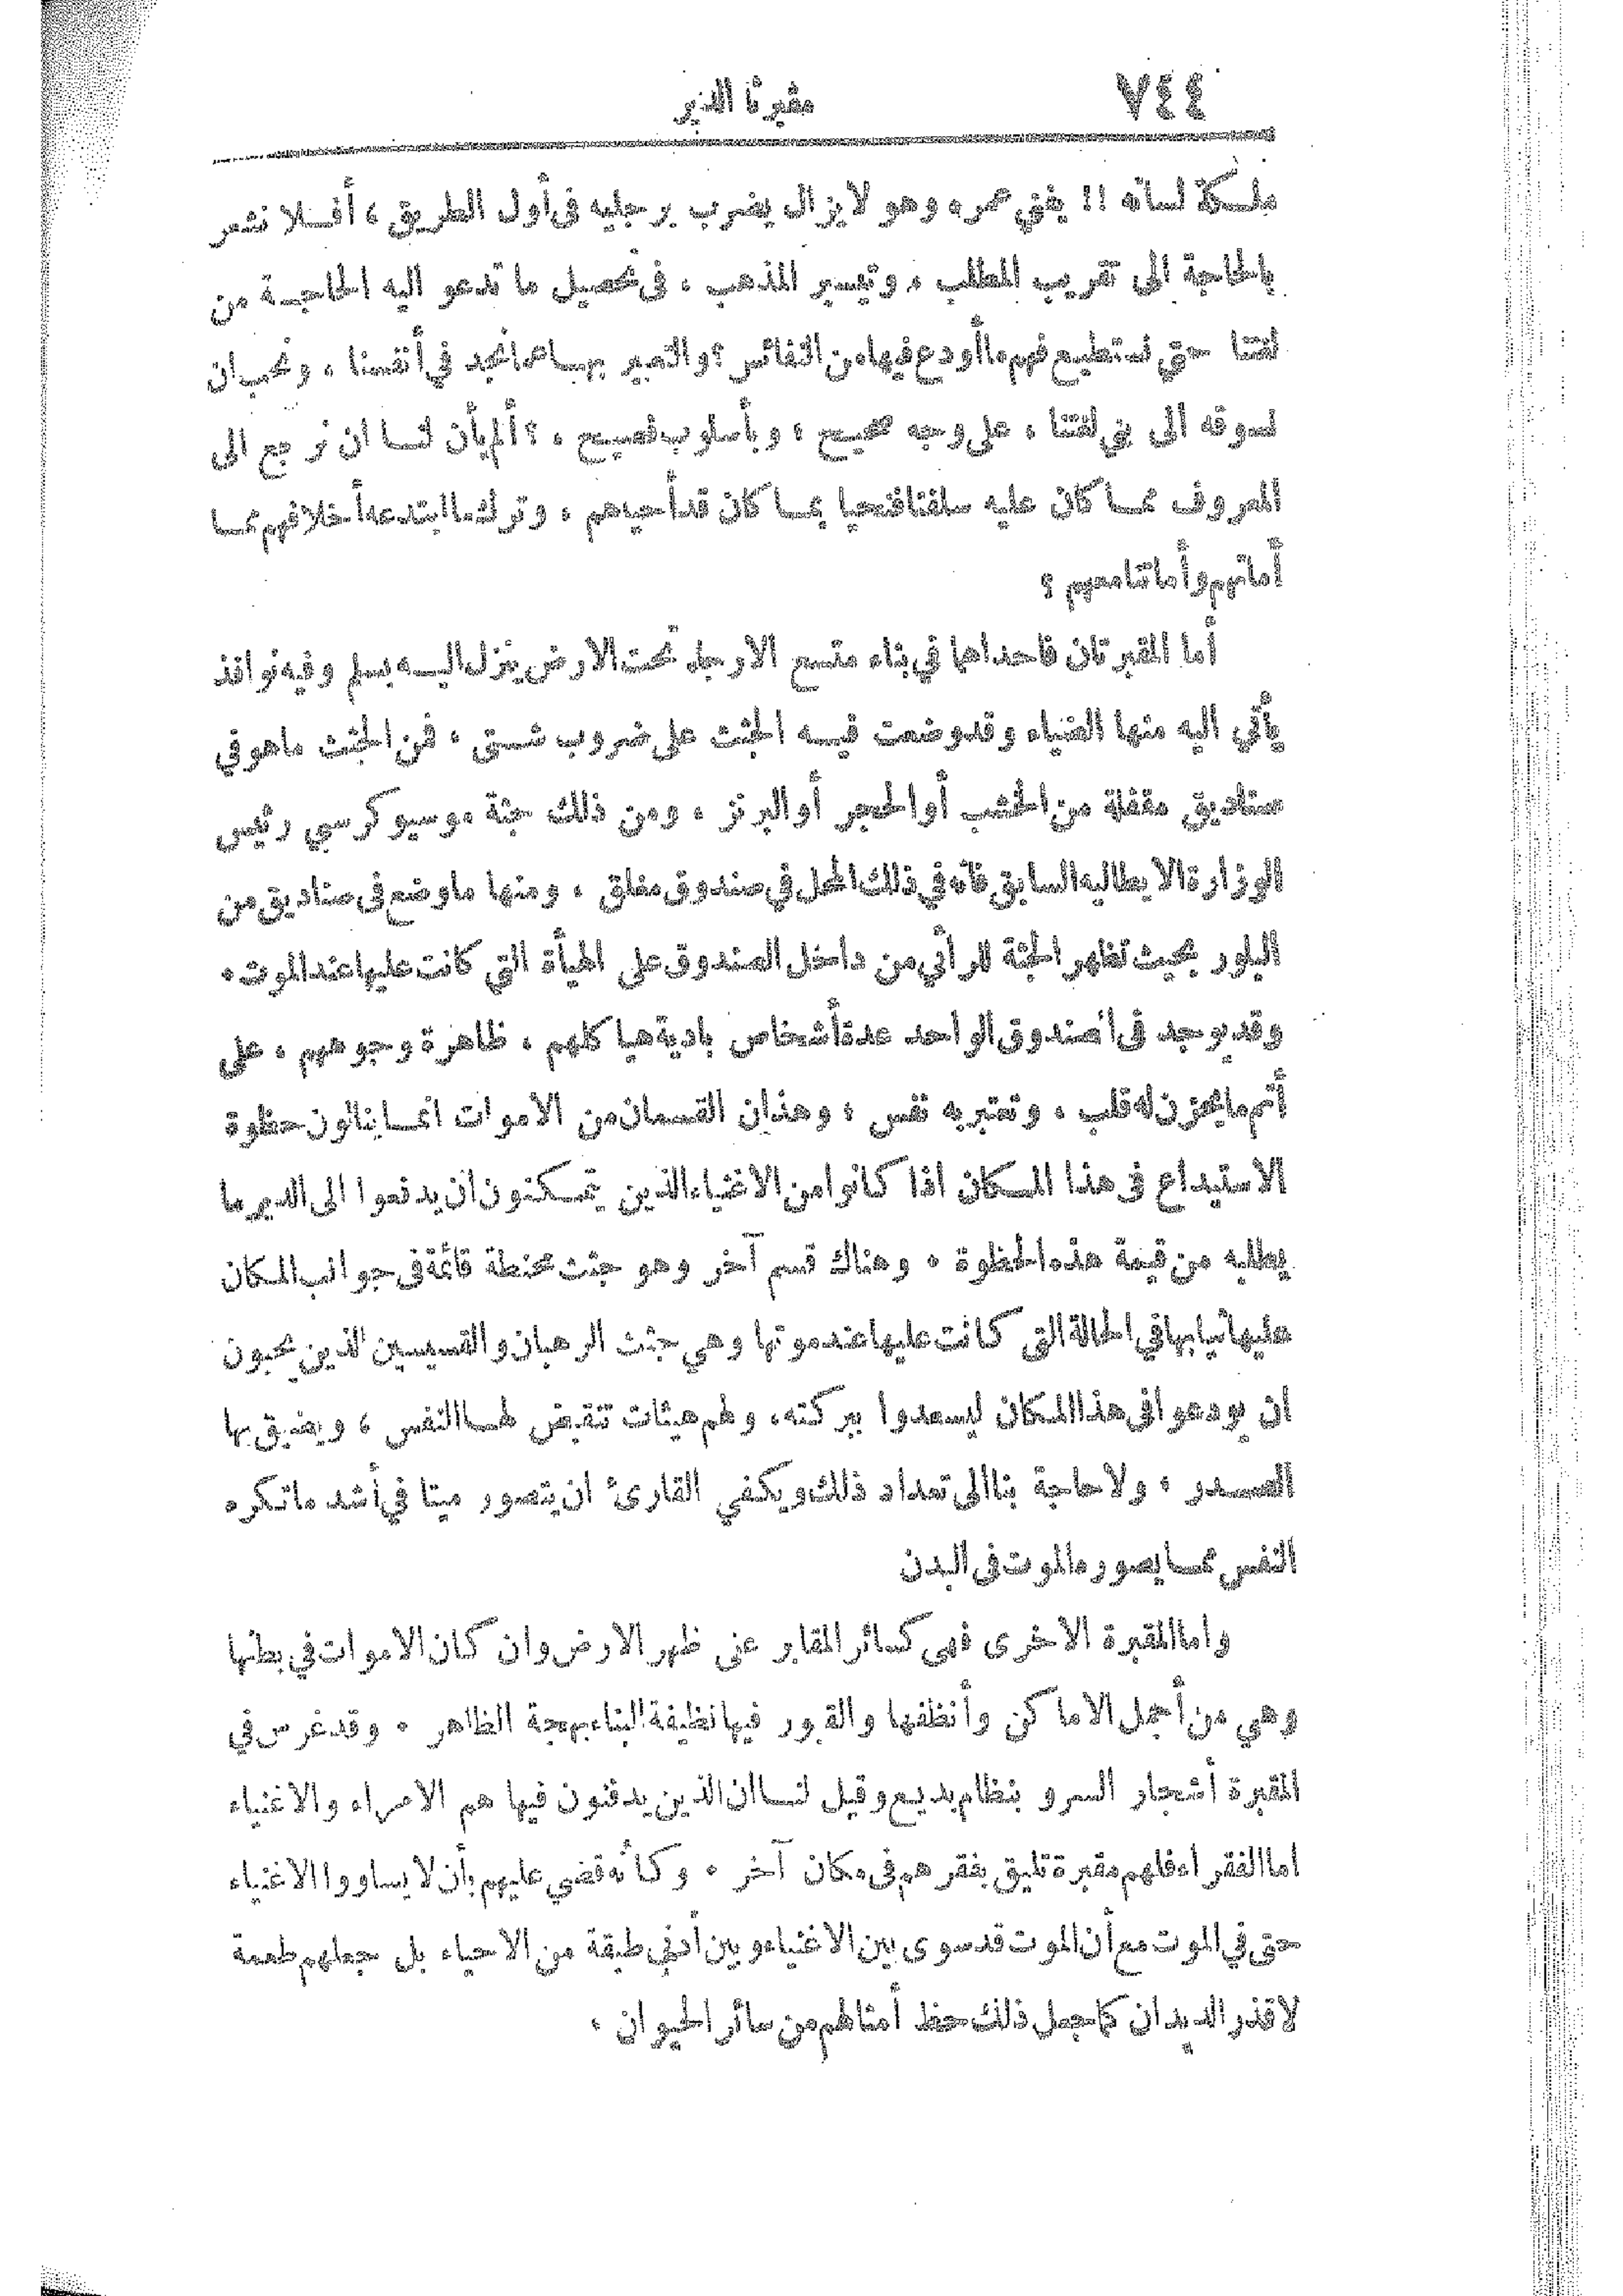 ٧٤٤ مقبرتا الدير
ملكة لسانه !! يفني عمره وهو لا يزال يضرب برجليه في أول الطريق ، أفلا نشعر
بالحاجة الى تقريب المطلب ، وتيسير المذهب ، في تحصيل ما تدعو اليه الحاجة من
لغتنا حتى نستطيع فهم ما أودع فيها من النفائس ؟ والتعبير بها عما نجد في أنفسنا ، ونحب ان
نسوقه الى بني لغتنا ، على وجه صحيح ، وبأسلوب فصيح ، ؟ ألم يأن لنا ان نرجع الى
المعروف مما كان عليه سلفنا فنحيا بما كان قد أحياهم ، وترك ما ابتدعه أخلافهم مما
أماتهم وأماتنا معهم ؟
أما المقبرتان فاحداهما في بناء متسع الارجاء تحت الارض ينزل اليه بسلم وفيه نوافذ
يأتي اليه منها الضياء وقد وضعت فيه الجثث على ضروب شتى ، فمن الجثث ما هو في
صناديق مقفلة من الخشب أو الحجر أو البرنز ، ومن ذلك جثة موسيو كرسبي رئيس
الوزارة الايطاليه السابق فانه في ذلك المحل في صندوق مغلق ، ومنها ما وضع في صناديق من
البلور بحيث تظهر الجثة للرائي من داخل الصندوق على الهيأة التي كانت عليها عند الموت .
وقد يوجد في الصندوق الواحد عدة أشخاص بادية هياكلهم ، ظاهرة وجوههم ، على
أتم ما يحزن له قلب ، وتعتبر به نفس ، وهذان القسمان من الاموات انما ينالون حظوة
الاستيداع في هذا المكان اذا كانوا من الاغنياء الذين يتمكنون ان يدفعوا الى الدير ما
يطلبه من قيمة هذه الحظوة . وهناك قسم آخر وهو جثث محنطة قائمة في جوانب المكان
عليها ثيابها في الحالة التي كانت عليها عند موتها وهي جثث الرهبان والقسيسين الذين يحبون
ان يودعوا في هذا المكان ليسعدوا ببركته، ولهم هيئات تنقبض لها النفس ، ويضيق بها
الصدر ، ولا حاجة بنا الى تعداد ذلك ويكفي القارئ ان يتصور ميتا في أشد ما تكره
النفس مما يصوره الموت في البدن
واما المقبرة الاخرى فهي كسائر المقابر على ظهر الارض وان كان الاموات في بطنها
وهي من أجمل الاماكن وأنظفها والقبور فيها نظيفة البناء بهجة الظاهر . وقد غرس في
المقبرة أشجار السرو بنظام بديع وقيل لنا ان الذين يدفنون فيها هم الامراء والاغنياء
اما الفقراء فلهم مقبرة تليق بفقرهم في مكان آخر . وكأنه قضي عليهم بأن لا يساووا الاغنياء
حتى في الموت مع أن الموت قد سوى بين الاغنياء وبين أدنى طبقة من الاحياء بل جعلهم طعمة
لاقذر الديدان كما جعل ذلك حظ أمثالهم من سائر الحيوان .